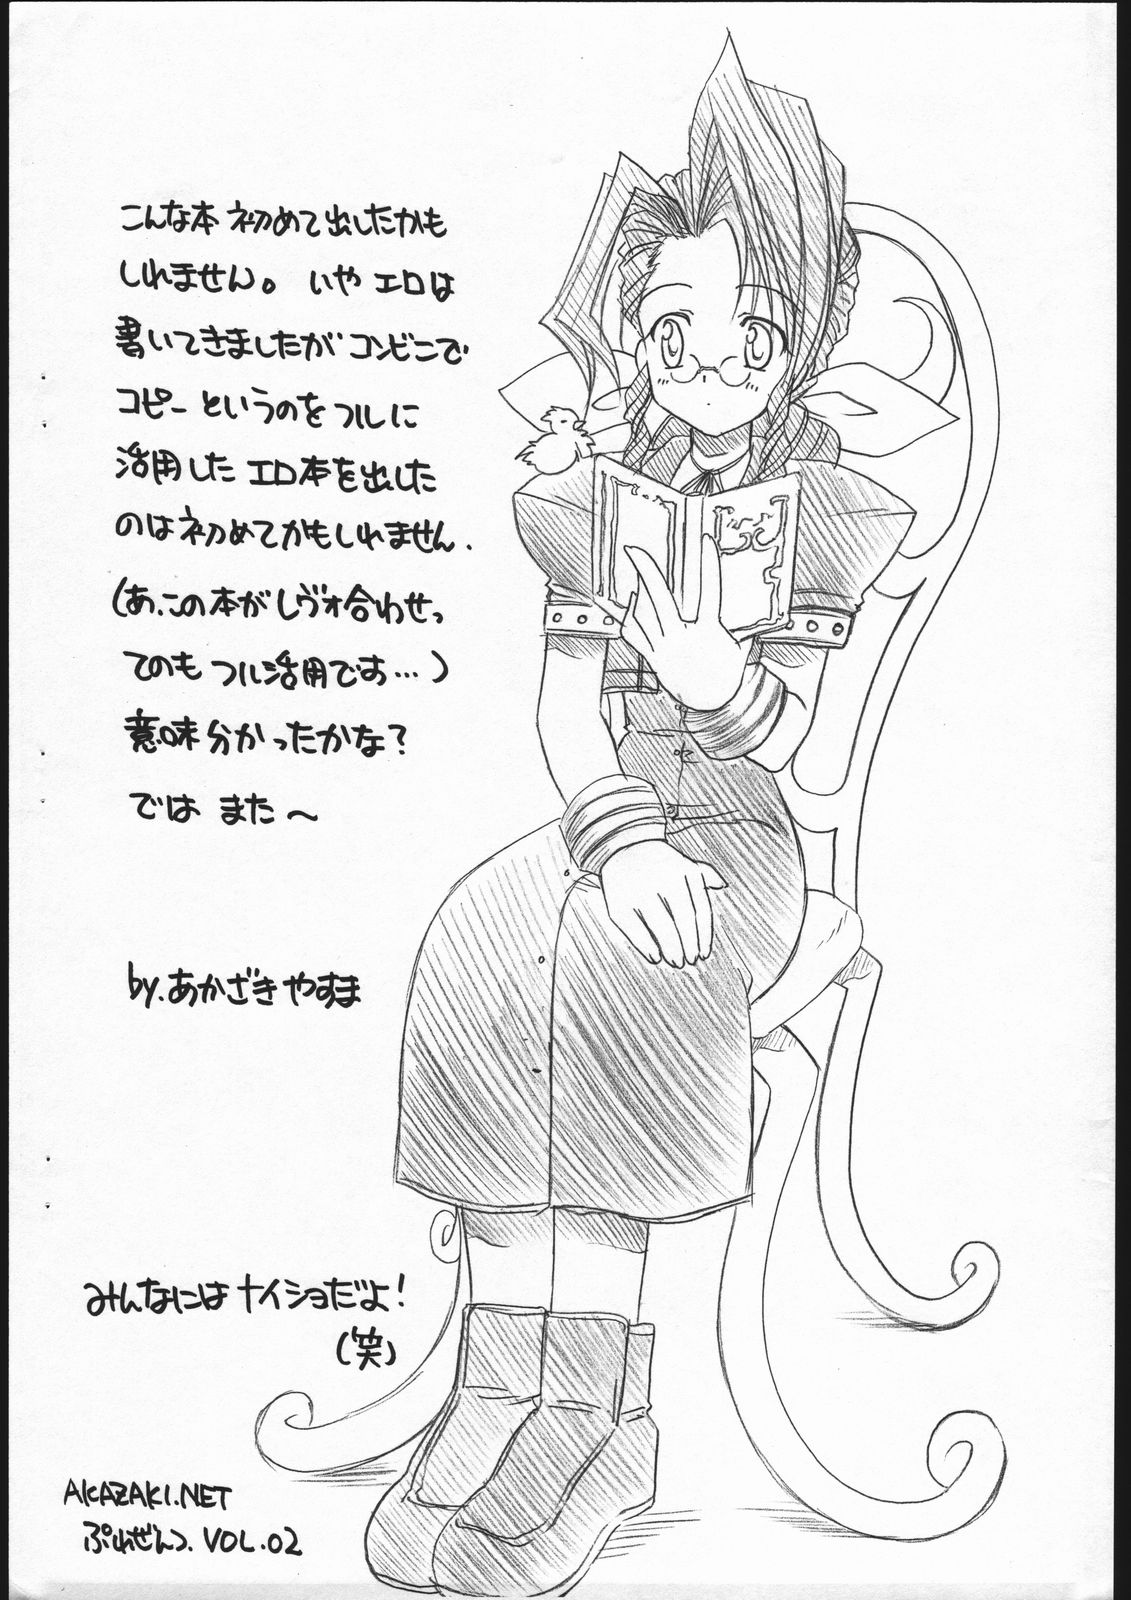 こんな本 初めて出したかも
しれません。 いや エロは
書いてきましたが コンビニで
コピー というのを フルに
活用した エロ本を出した
のは初めてかもしれません.
(あ、この本がレヴォ合わせっ
てのも フル活用です…)
意味分かったかな?
では また〜
by.あかざきやすま
みんなにはナイショだよ!
(笑)
AKAZAKI.NET
ぷれぜんつ. VOL.02